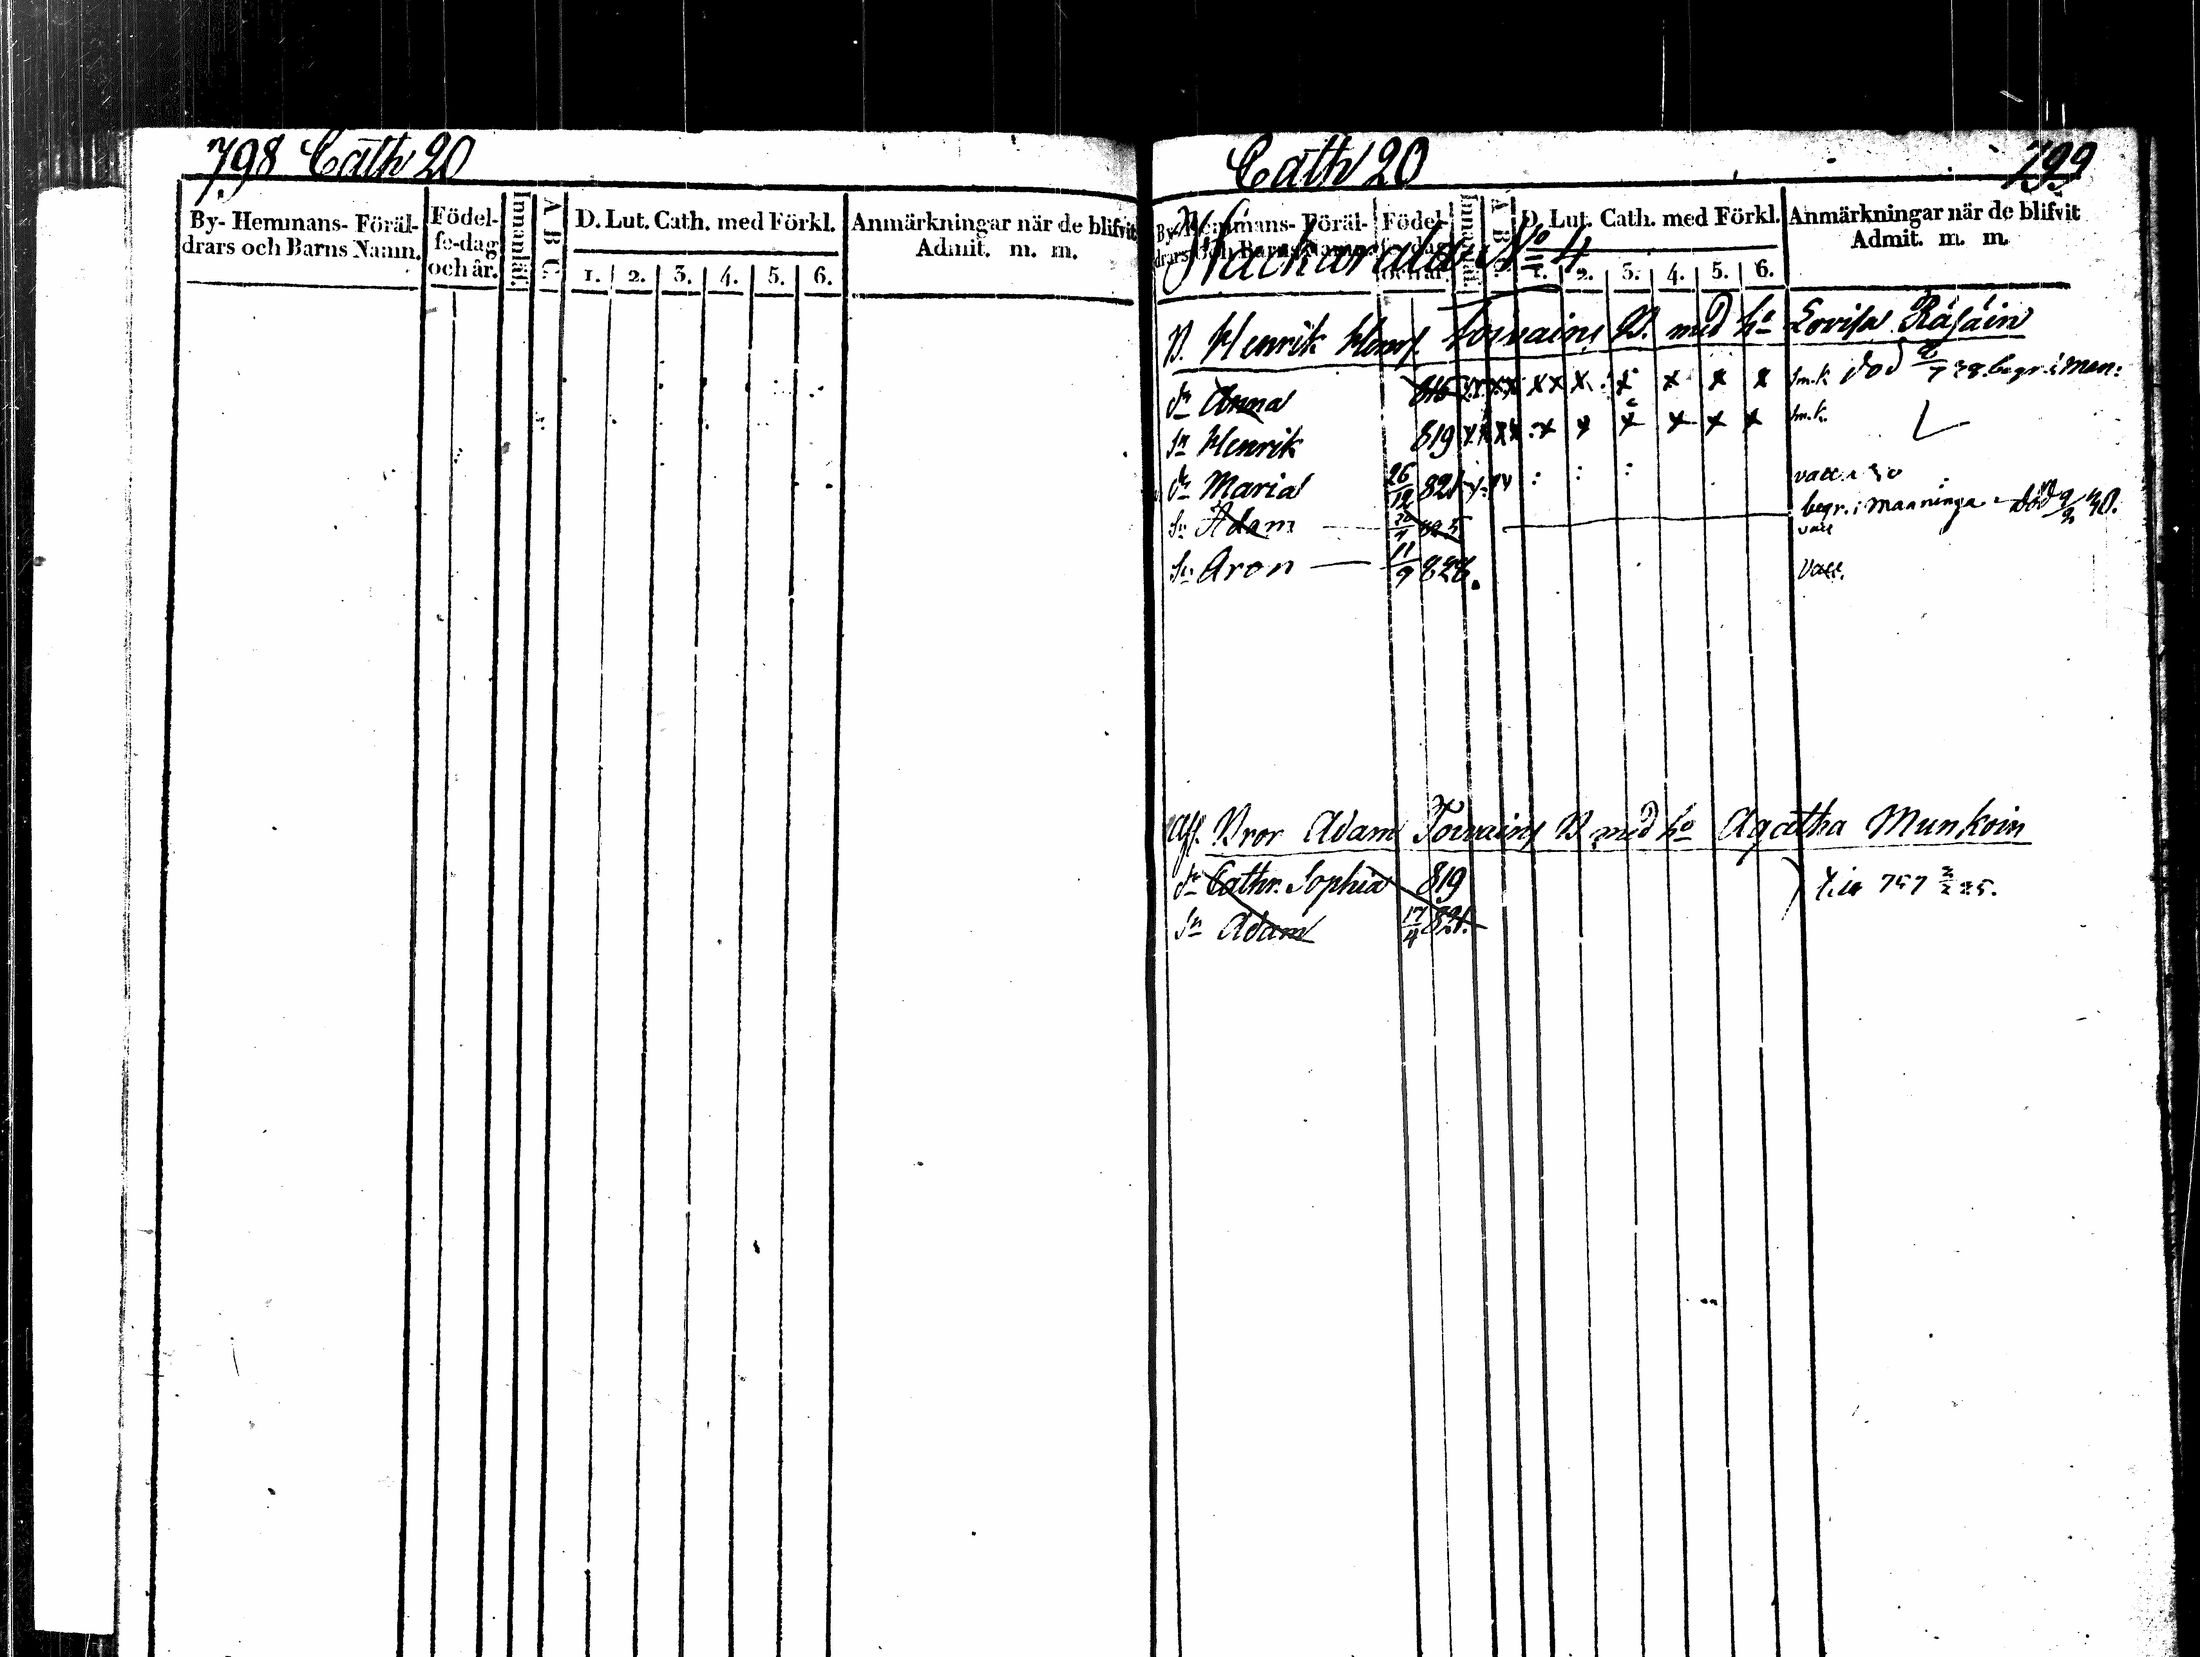 798 Cath 20
By- Hemmans- Föräl-
drars och Barns Namn.
Födel-
se-dag
och år.
Innanläs.
A B C.
D. Lut. Cath. med Förkl.
1. 2. 3. 4. 5. 6.
Anmärkningar när de blifvit
Admit. m. m.
Cath 20 799
By- Hemmans- Föräl-
drars och Barns Namn.
Födel-
Innanläs.
A B
D. Lut. Cath. med Förkl.
1. 2. 3. 4. 5. 6.
Anmärkningar när de blifvit
Admit. m. m.
No 4
B. Henrik Toivains B. med ho Lovisa Räsäin
dr Anna 816 x x x x x x x x x sm.k död 738. begr. i
sn Henrik 819 x x x x x x x x x x sm.k.
dr Maria 26/12 821
sn Adam 825 begr. i Maaninga död 30.
vacc
sn Aron — 11/9 828. vacc.
Aff. Bror Adam Toivains B med ho Agatha Munkoin
dr Cathr. Sophia 819 757 2/2 25.
sn Adam 17/4 821.